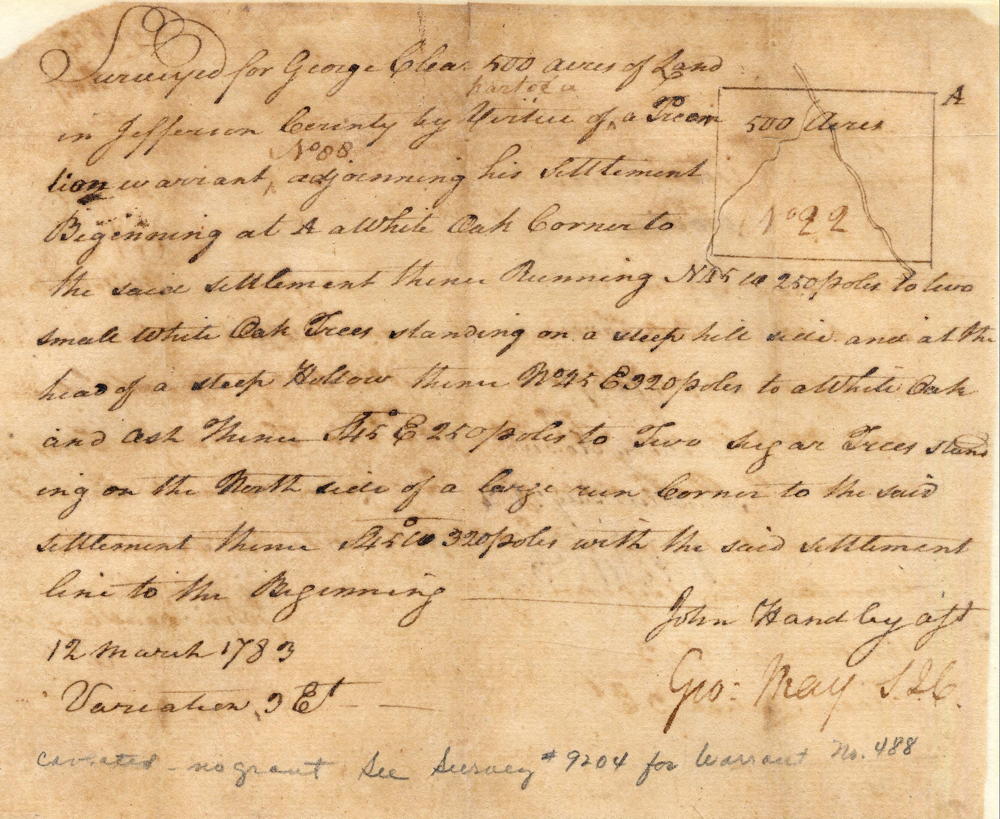 Surveyed for George Clea. 500 acres of Land
part of a
in Jefferson County by Virtue of ^ a Preem
No 88
tion warrant, ^ adjoinning his Settlement
Beginning at A a White Oak Corner to
the said settlement thence Running N45 W 250 poles to two
small White Oak Trees standing on a steep hill side and at the
head of a steep Hollow thence No 45 E 320 poles to a White Oak
and Ash Thence S45° E 250 poles to Two Sugar Trees stand
ing on the North side of a large run Corner to the said
settlement thence S45° W 320 poles with the said settlement
line to the Beginning
John Handley asst
12 March 1783
Geo: May S J C.
Variation 3 Et
A
500 Acres
No 22
caviated - no grant See Survey # 9204 for Warrant No. 488